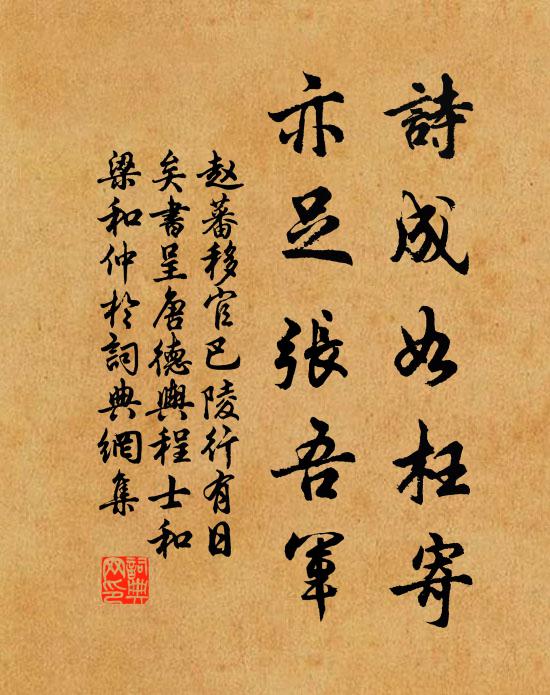 詩成如枉寄
亦足張吾軍
赵蕃移官巴陵行有日
矣書呈唐德輿程士和
梁和仲於詞典網集
詞典
网印